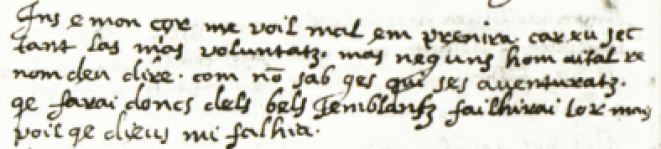 Ins e mon cor me voil mal em prenira. car eu sec
tant las mas voluntatz. mas neguns hom aital re
nom deu dire. com nō sab ges qui ses auenturatz.
qe farai doncs dels bels semblantz failhirai lor mas
voil qe dieus mi falhia.